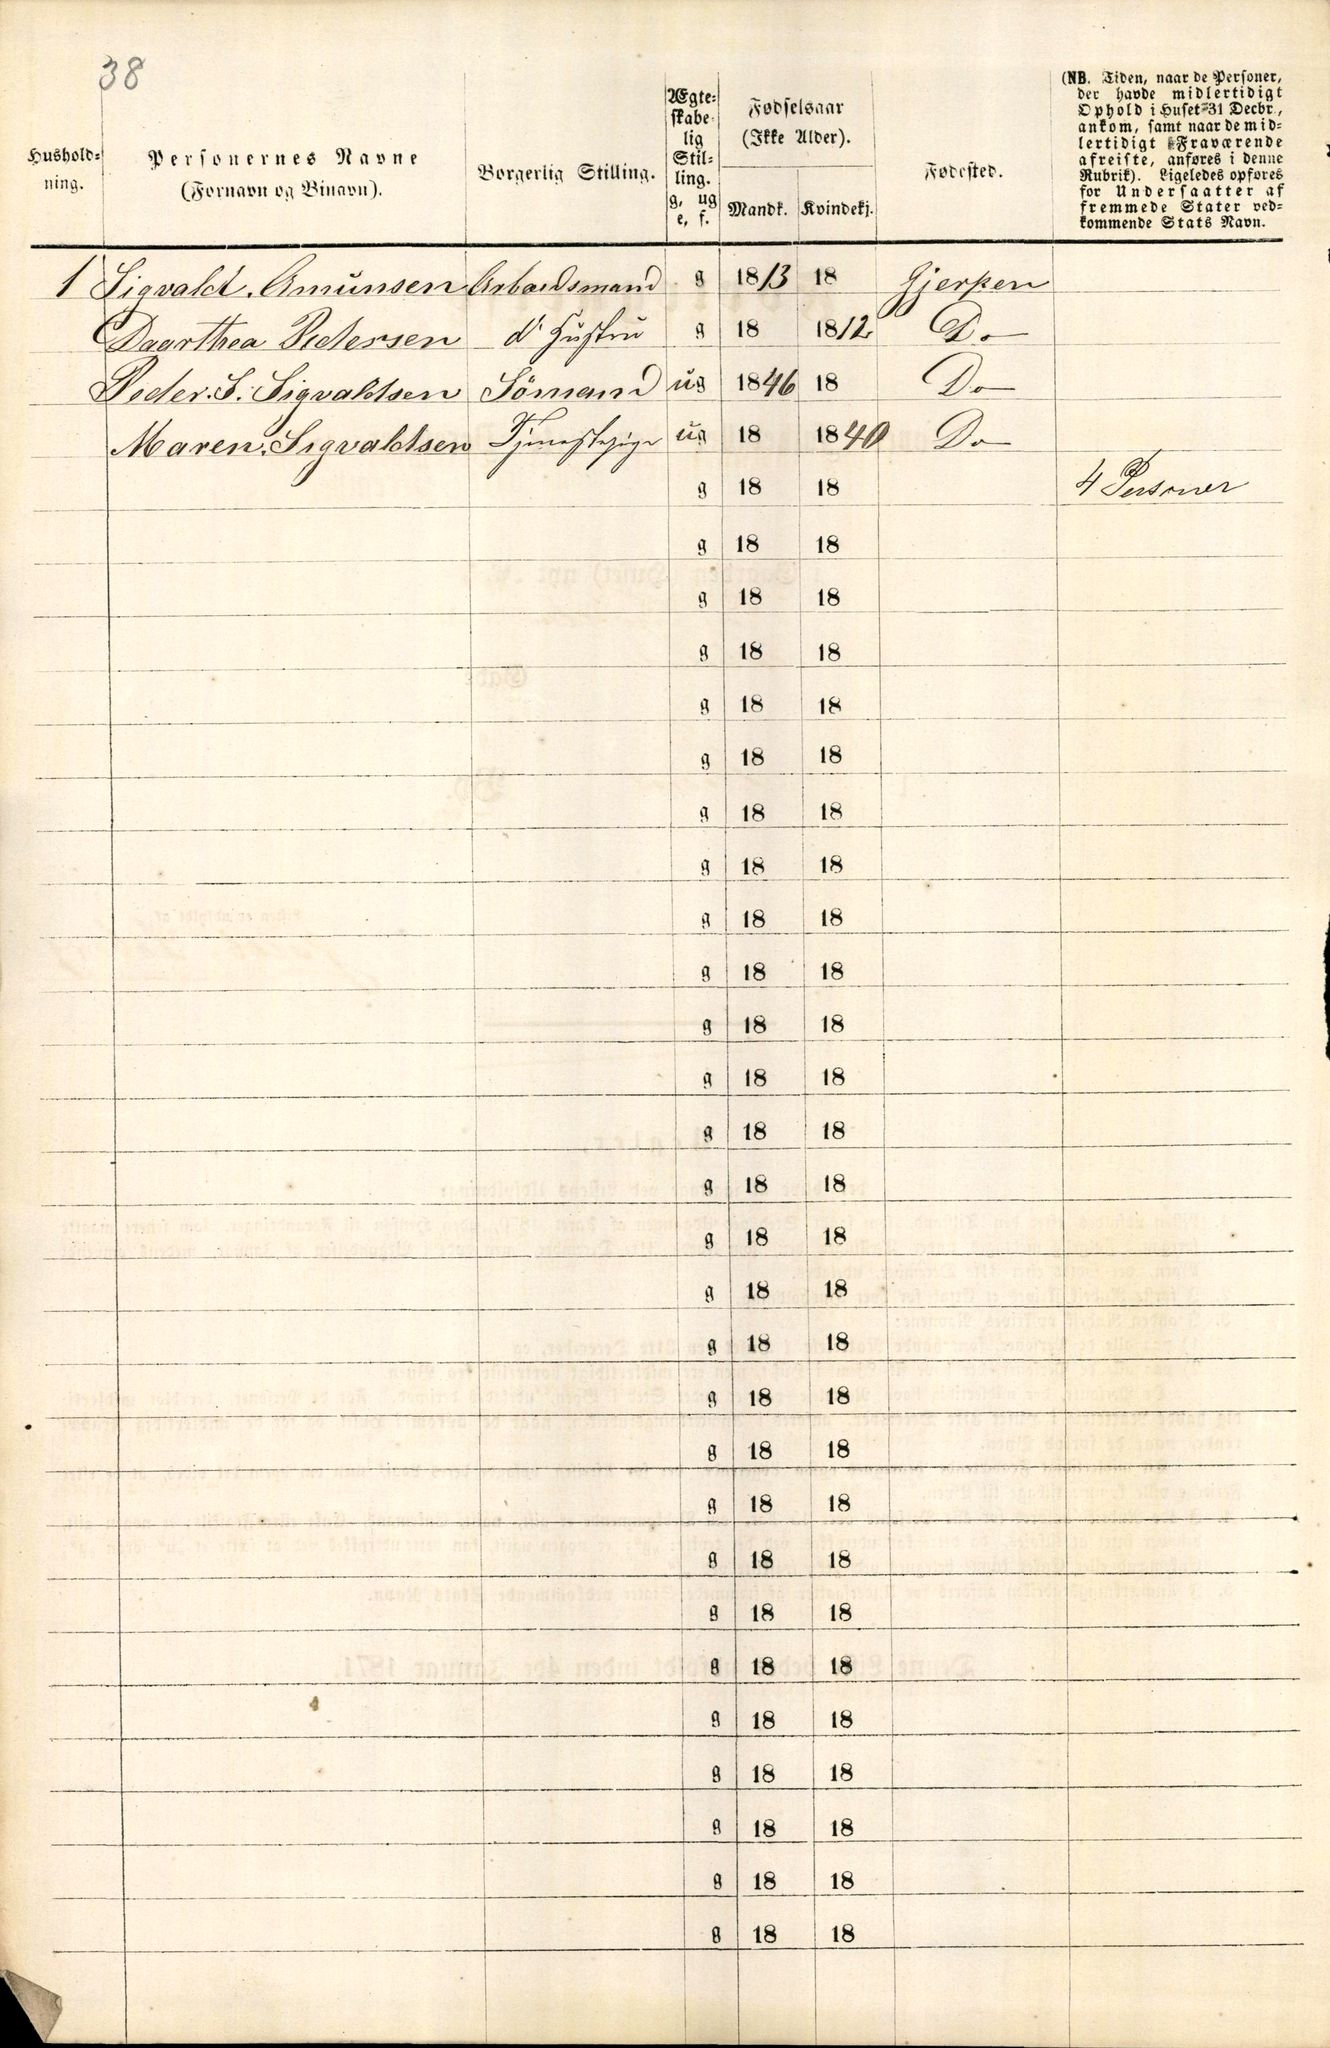 38
Hushold-
ning.
Personernes Navne
(Fornavn og Binavn).
Borgerlig Stilling.
Ægte-
skabe-
lig
Stil-
ling.
g, ug
e, f.
Fødselsaar
(Ikke Alder).
Mandk. Kvindekj.
Fødested.
(NB. Tiden, naar de Personer,
der havde midlertidigt
Ophold i Huset 31 Decbr.,
ankom, samt naar de mid-
lertidigt Fraværende
afreiste, anføres i denne
Rubrik). Ligeledes opføres
for Undersaatter af
fremmede Stater ved-
kommende Stats Navn.
1 Sigvald. Amunsen Arbeidsmand g 1813 18 Gjerpen
Daarthea Pedersen d' Hustru g 18 1812 Do
Peder. S. Sigvaldsen Sömand ug 1846 18 Do
Maren. Sigvaldsen Tjenestepige ug 18 1840 Do
g 18 18 4 Personer
g 18 18
g 18 18
g 18 18
g 18 18
g 18 18
g 18 18
g 18 18
g 18 18
g 18 18
g 18 18
g 18 18
g 18 18
g 18 18
g 18 18
g 18 18
g 18 18
g 18 18
g 18 18
g 18 18
g 18 18
g 18 18
g 18 18
g 18 18
g 18 18
g 18 18
g 18 18
g 18 18